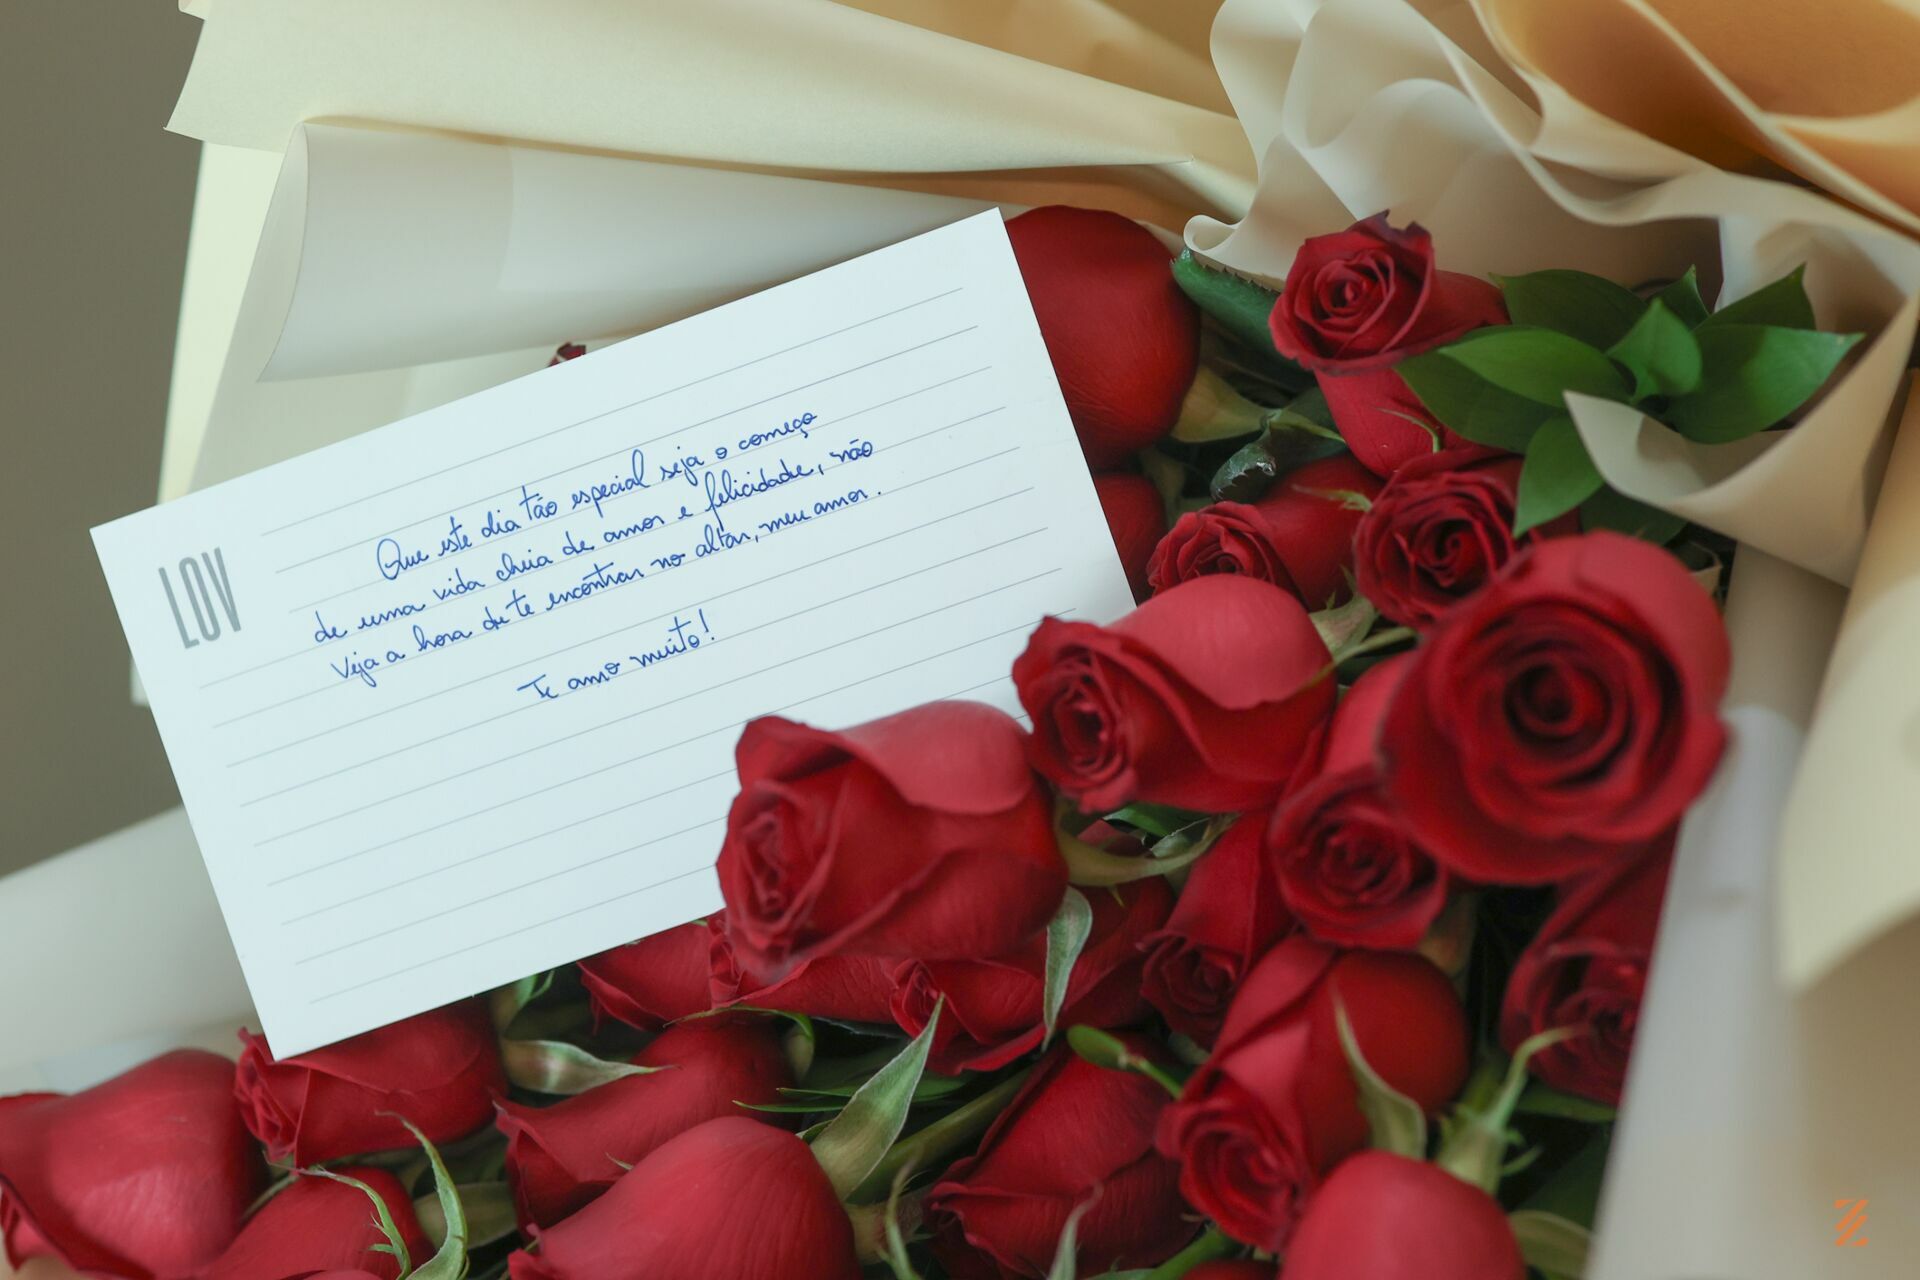 LOV
Que este dia tão especial seja o começo
de uma vida cheia de amor e felicidade, não
Veja a hora de te encontrar no altar, meu amor.
Te amo muito!